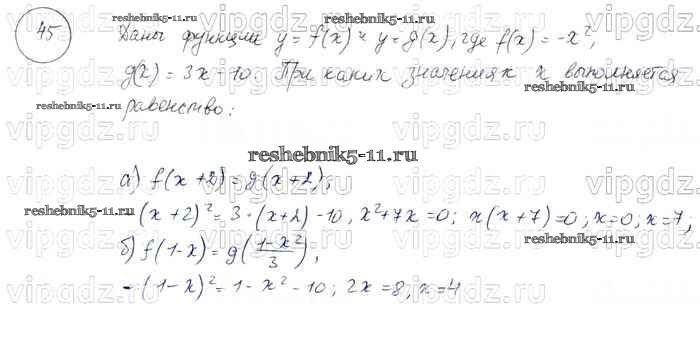 45
reshebnik5-11.ru
Даны функции y = f(x) и y = g(x), где f(x) = -x²,
g(x) = 3x - 10. При каких значениях x выполняется
reshebnik5-11.ru
reshebnik5-11.ru
равенство:
reshebnik5-11.ru
а) f(x+2) = g(x+2);
reshebnik5-11.ru
-(x+2)² = 3·(x+2) - 10, x²+7x=0; x(x+7)=0; x=0; x=7,
б) f(1-x) = g((1-x²)/3),
reshebnik5-11.ru
-(1-x)² = 1 - x² - 10; 2x = 8, x = 4
vipgdz.ru vipgdz.ru vipgdz.ru vipgdz.ru
vipgdz.ru vipgdz.ru vipgdz.ru vipgdz.ru
vipgdz.ru vipgdz.ru vipgdz.ru vipgdz.ru
vipgdz.ru vipgdz.ru vipgdz.ru vipgdz.ru
vipgdz.ru vipgdz.ru vipgdz.ru vipgdz.ru